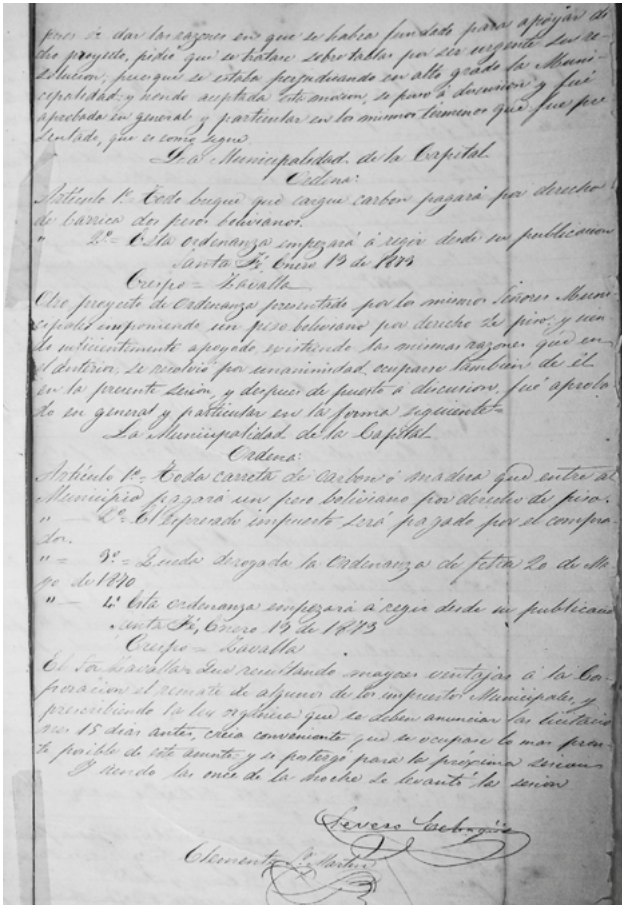 pues de dar las razones en que se habia fundado para apoyar di-
cho proyecto, pidió que se tratase sobre tablas por ser urgente su re-
solucion, puesque se estaba perjudicando en alto grado la Muni-
cipalidad; y siendo aceptada esta mocion, se puso á discusion y fué
aprobada en general y particular en los mismos términos que fue pre
sentado, que es como sigue
La Municipalidad de la Capital
Ordena:
Artículo 1º Todo buque que cargue carbon pagará por derecho
de barrica dos pesos bolivianos.
" 2º = Esta ordenanza empezará á regir desde su publicacion
Santa Fé, Enero 13 de 1873
Crespo = Zavalla
Otro proyecto de Ordenanza presentado por los mismos Señores Muni-
cipales imponiendo un peso boliviano por derecho de piso, y sien-
do suficientemente apoyado, existiendo las mismas razones que en
el anterior, se resolvió por unanimidad, ocuparse tambien de él
en la presente sesion, y despues de puesto á discusion, fué aproba-
do en general y particular en la forma siguiente =
La Municipalidad de la Capital
Ordena:
Artículo 1º = Toda carreta de carbon ó madera que entre al
Municipio pagará un peso boliviano por derecho de piso.
" — 2º = El espresado impuesto será pagado por el compra-
dor.
" = 3º = Queda derogada la Ordenanza de fecha 20 de Ma-
yo de 1870
" — 4º Esta ordenanza empezará á regir desde su publicacion
Santa Fé, Enero 13 de 1873
Crespo = Zavalla
El Sor Zavalla = Que resultando mayores ventajas á la Cor-
poracion el remate de algunos de los impuestos Municipales, y
prescribiendo la ley orgánica que se deben anunciar las licitacio
nes 15 dias antes, creia conveniente que se ocupase lo mas pron-
to posible de este asunto; y se postergó para la próxima sesion
Y siendo las once de la noche se levantó la sesion
Severo
Clemente Sn Martin